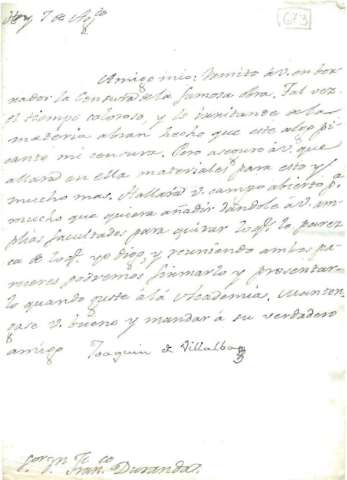 Hoy 7 de Ag.to
673
Amigo mio: Remito à V. en bor-
rador la Censura de la famosa obra. Tal vez
el tiempo caloroso, y lo irritante de la
materia abran hecho que este algo pi-
cante mi censura. Pero aseguro à V. que
allará en ella materiales para esto y
mucho mas. Hallará V. campo abierto p.a
mucho que quiera añadir dandole à V. am-
plias facultades para quitar lo q.e lo parez-
ca de lo q.e yo digo, y reuniendo ambos pa-
receres podremos firmarlo y presentar-
lo quando guste à la Academia. Manten-
gase V. bueno y mandar à su verdadero
amigo Joaquin de Villalba
Fran. Durando.